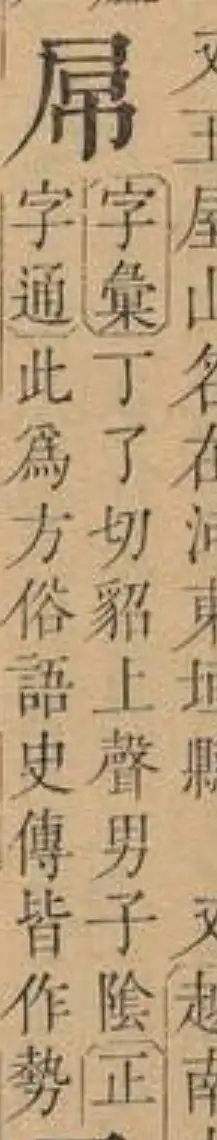 又王屋山名在河東垣縣　又越南
屌
字彙丁了切貂上聲男子陰正
字通此爲方俗語史傳皆作勢